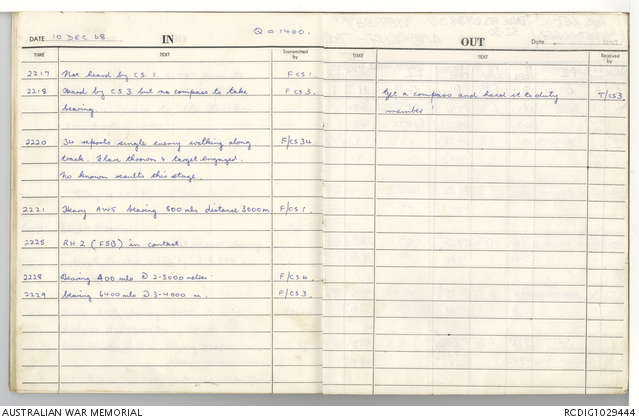 DATE 10 DEC 68 IN Q 01400.
TIME TEXT Transmitted by
2217 Not heard by CS 1 F CS 1
2218 Heard by CS3 but no compass to take F CS3
bearing.
2220 34 reports single enemy walking along F/CS34
track. Flare thrown & target engaged.
No known results this stage.
2221 Heavy AWF bearing 800 mls distance 3000m F/CS1
2225 RH 2 (FSB) in contact.
2228 Bearing 400 mls D 2-3000 metres. F/CS4
2229 bearing 6400 mls D 3-4000 m. F/CS3
OUT Date
TIME TEXT Received by
Get a compass and hand it to duty T/CS3
member!
AUSTRALIAN WAR MEMORIAL RCDIG1029444